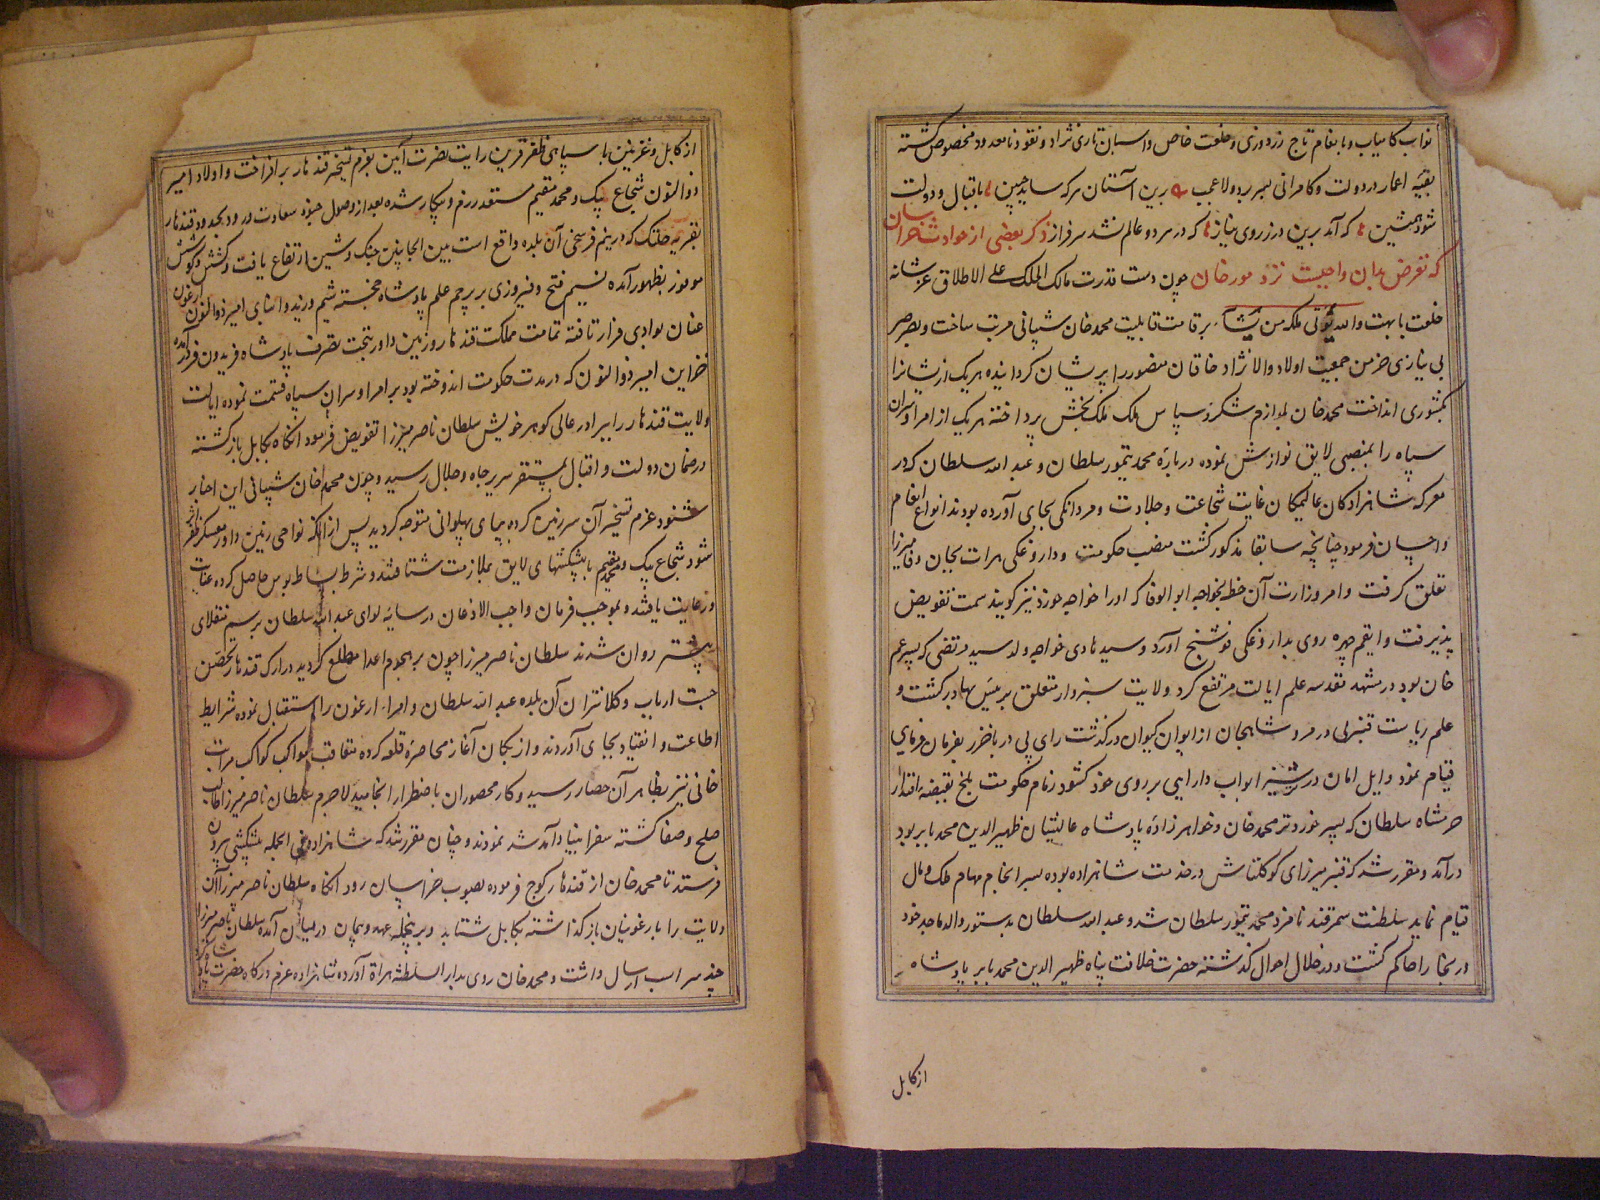 نواب کامیاب و بانعام تاج زردوزی و خلعت خاص و اسبان تازی نژاد و نقود نامعدود مخصوص کشته
بقیه اعمار در دولت و کامرانی بسر برد ولاعجب برین آستان هر که ساید جبین باقبال و دولت
شود همنشین که آمد برین در ز روی نیاز که در هر دو عالم نشد سرفراز ذکر بعضی از حوادث خراسان
که تعرض بدان واجبست نزد مورخان چون دست قدرت مالک الملک علی الاطلاق عز شانه
خلعت با بهت والله یؤتی ملکه من یشاء بر قامت قابلیت محمد خان شیبانی مرتب ساخت و بصرصر
بی نیازی خرمن جمعیت اولاد والا نژاد خاقان منصور را پریشان کردانیده هر یک از یشانرا
بکشوری انداخت محمد خان بلوازم شکر و سپاس ملک ملک بخش پرداخته هر یک از امرا و سران
سپاه را بمنصبی لایق نوازش نموده درباره محمد تیمور سلطان و عبد الله سلطان که در
معرکه شاهزادکان عالیمکان غایت شجاعت و جلادت و مردانکی بجای آورده بودند انواع انعام
و احسان فرمود چنانچه سابقا مذکور کشت منصب حکومت و داروغکی هرات بجان وفا میرزا
تعلق کرفت و امر وزارت آن خطه بخواجه ابو الوفا که او را خواجه خورد نیز کویند سمت تفویض
پذیرفت و ایقم چهره روی بداروغکی فوشنج آورد و سید هادی خواجه ولد سید مرتضی که پسر عم
خان بود در مشهد مقدسه علم ایالت مرتفع کرد ولایت سبزوار متعلق برئیس بهادر کشت و
علم ریاست قنبر بی در مرو شاهجان از ایوان کیوان درکذشت رای پی در باخرز بفرمان فرمایی
قیام نمود و ایل امان در ترشیز ابواب دارایی بر روی خود کشود زمام حکومت بلخ بقبضه اقتدار
خرمشاه سلطان که پسر خوردتر محمد خان و خواهر زاده پادشاه عالیشان ظهیر الدین محمد بابر بود
درآمد و مقرر شد که قنبر میرزای کوکلتاش در خدمت شاهزاده بوده بسر انجام مهام ملک و مال
قیام نماید سلطنت سمرقند نامزد محمد تیمور سلطان شد و عبد الله سلطان بدستور والد ماجد خود
در بخارا حاکم کشت و در خلال احوال کذشته حضرت خلافت پناه ظهیر الدین محمد بابر پادشاه
از کابل
از کابل و غزنین با سپاهی ظفر قرین رایت نصرت آیین بعزم تسخیر قندهار برافراخت و اولاد امیر
ذوالنون شجاع بیک و محمد مقیم مستعد رزم و پیکار شده بعد از وصول جنود سعادت ورود بحدود قندهار
بقریه که در نیم فرسخی آن بلده واقع است بین الجانبین جنک و شین ارتفاع یافت و کشش و کوشش
موفور بظهور آمده نسیم فتح و فیروزی بر پرچم علم پادشاه خجسته شیم وزید و ابنای امیر ذوالنون ارغون
عنان بوادی فرار تافته تمامت مملکت قندهار و زمین داور بتحت تصرف پادشاه فریدون فر درآمده
خزاین امیر ذوالنون که در مدت حکومت اندوخته بود بر امرا و سران سپاه قسمت نموده ایالت
ولایت قندهار را ببرادر عالی کوهر خویش سلطان ناصر میرزا تفویض فرمود انکاه بکابل بازکشته
در ضمان دولت و اقبال بمستقر سریر جاه و جلال رسید و چون محمد خان شیبانی این اخبار
شنود عزم تسخیر آن سرزمین کرده بپای پهلوانی متوجه کردید پس از آنکه نواحی زمین داور معسکر ظفر اثر
شود شجاع بیک و محمد مقیم با پیشکشهای لایق بملازمت شتافتند و شرط بساط بوس حاصل کرده عنایت
و رعایت یافتند و بموجب فرمان واجب الاذعان در سایه لوای عبد الله سلطان برسم منقلای
پیشتر روان شدند سلطان ناصر میرزا چون بر هجوم اعدا مطلع کردید در ارک قندهار تحصن
جست ارباب و کلانتران آن بلده عبد الله سلطان و امراء ارغون را استقبال نموده شرایط
اطاعت و انقیاد بجای آوردند و از یکان آغاز محاصره قلعه کرده متعاقب مواکب کواکب مراتب
خانی نیز بظاهر آن حصار رسید و کار محصوران باضطرار انجامید لاجرم سلطان ناصر میرزا طالب
صلح و صفا کشته سفرا بنیاد آمد شد نمودند و چنان مقرر شد که شاهزاده فی الجمله پیشکشی بیرون
فرستد تا محمد خان از قندهار کوچ فرموده بصوب خراسان رود انکاه سلطان ناصر میرزا آن
ولایت را بارغونیان بازکذاشته بکابل شتابد و برینجمله عهد و پیمان در میان آمده سلطان ناصر میرزا
چند سر اسب ارسال داشت و محمد خان روی بدار السلطنه هراة آورده شاهزاده عزم درکاه حضرت پادشاه